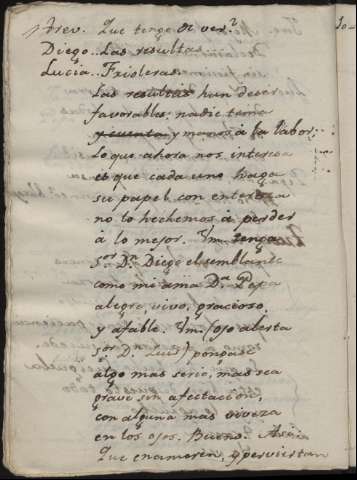 Trev. Que tengo de ver?
Diego.. Las resultas
Lucia.. Frioleras
Las resultas han de ser
favorables; nadie tema
y cuenta y manos à la labor;
lo que ahora nos interesa
es que cada uno haga
su papel con entereza
no lo hechemos à perder
à lo mejor. Vm. tenga
sor. Dn. Diego el semblante
como mi ama Da. Pepa
alegre, vivo, gracioso
y afable. Vm. (ojo alerta
sor. D. Luis) pongase
algo mas serio, mas sea
grave sin afectacion,
con alguna mas viveza
en los ojos. Bueno. Asi
Que enamoren, y perviertan